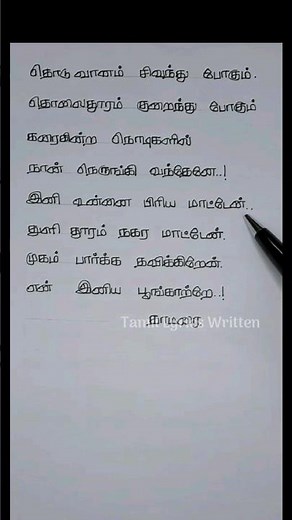 தொடு வானம் சிவந்து போகும்.
தொலைதூரம் குறைந்து போகும்
கரைகின்ற நொடிகளில்
நான் நெருங்கி வந்தேனே..!
இனி உன்னை பிரிய மாட்டேன்..
துளி தூரம் நகர மாட்டேன்.
முகம் பார்க்க தவிக்கிறேன்.
என் இனிய பூங்காற்றே..!
Tamil Lyrics Written